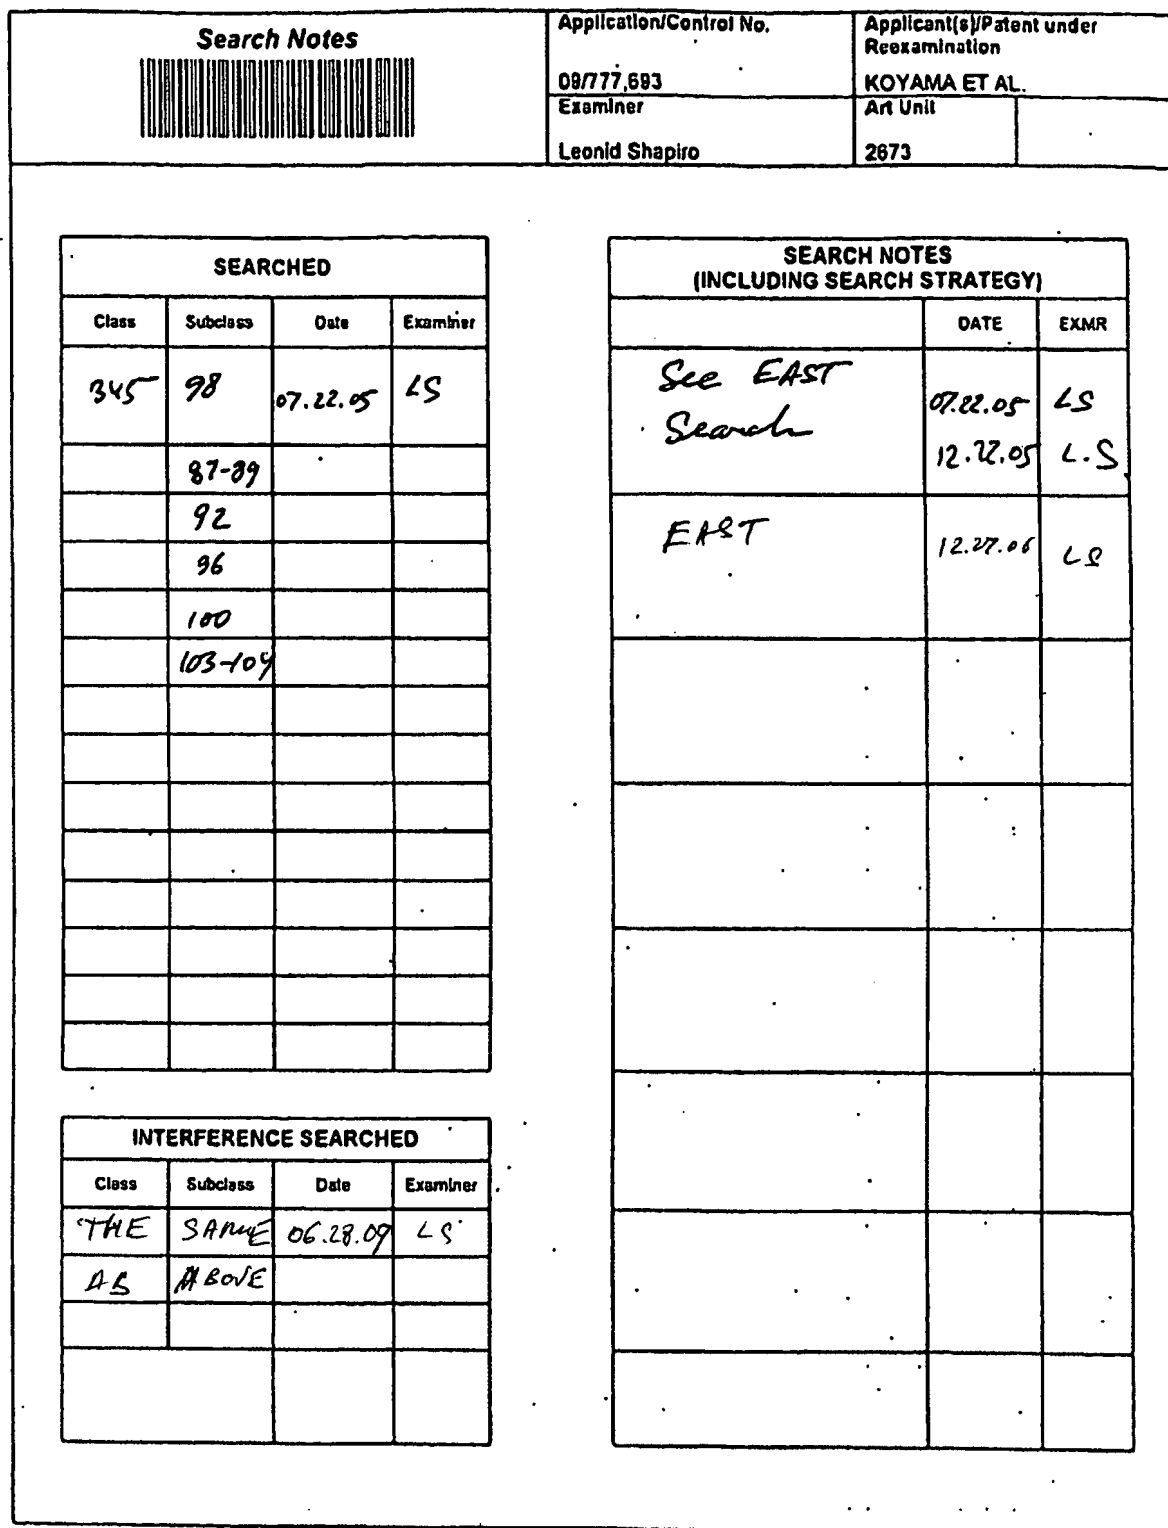 Search Notes
Application/Control No.
09/777,693
Applicant(s)/Patent under
Reexamination
KOYAMA ET AL.
Examiner
Leonid Shapiro
Art Unit
2673
SEARCHED
Class Subclass Date Examiner
345 98 07.22.05 LS
87-89
92
96
100
103-104
INTERFERENCE SEARCHED
Class Subclass Date Examiner
THE SAME 06.28.09 LS
AS ABOVE
SEARCH NOTES
(INCLUDING SEARCH STRATEGY)
DATE EXMR
See EAST
Search
07.22.05 LS
12.22.05 L.S
EAST 12.27.06 LS